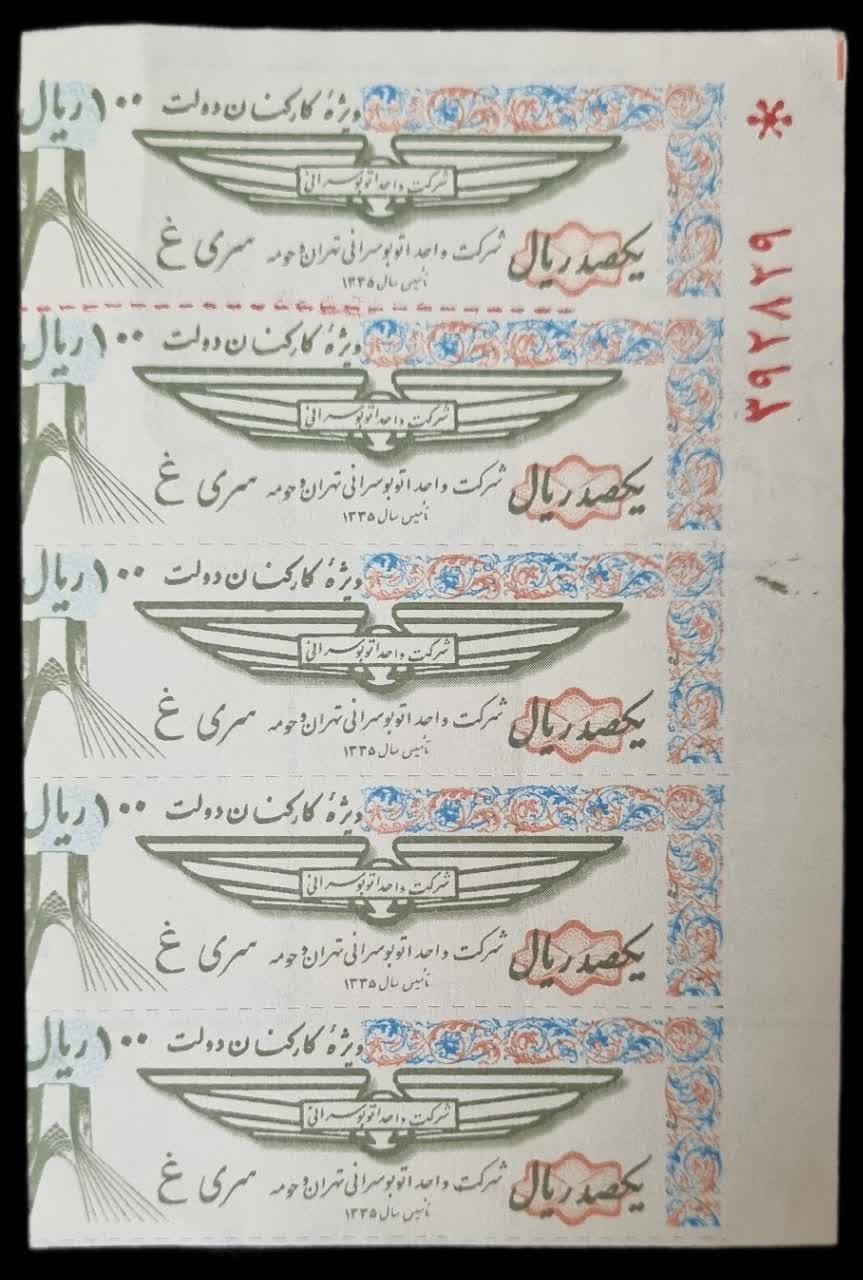 ویژهٔ کارکنان دولت ۱۰۰ ریال
شرکت واحد اتوبوسرانی
یکصد ریال شرکت واحد اتوبوسرانی تهران و حومه سری غ
تأسیس سال ۱۳۳۵
ویژهٔ کارکنان دولت ۱۰۰ ریال
شرکت واحد اتوبوسرانی
یکصد ریال شرکت واحد اتوبوسرانی تهران و حومه سری غ
تأسیس سال ۱۳۳۵
ویژهٔ کارکنان دولت ۱۰۰ ریال
شرکت واحد اتوبوسرانی
یکصد ریال شرکت واحد اتوبوسرانی تهران و حومه سری غ
تأسیس سال ۱۳۳۵
ویژهٔ کارکنان دولت ۱۰۰ ریال
شرکت واحد اتوبوسرانی
یکصد ریال شرکت واحد اتوبوسرانی تهران و حومه سری غ
تأسیس سال ۱۳۳۵
ویژهٔ کارکنان دولت ۱۰۰ ریال
شرکت واحد اتوبوسرانی
یکصد ریال شرکت واحد اتوبوسرانی تهران و حومه سری غ
تأسیس سال ۱۳۳۵
* ۳۹۲۸۲۹